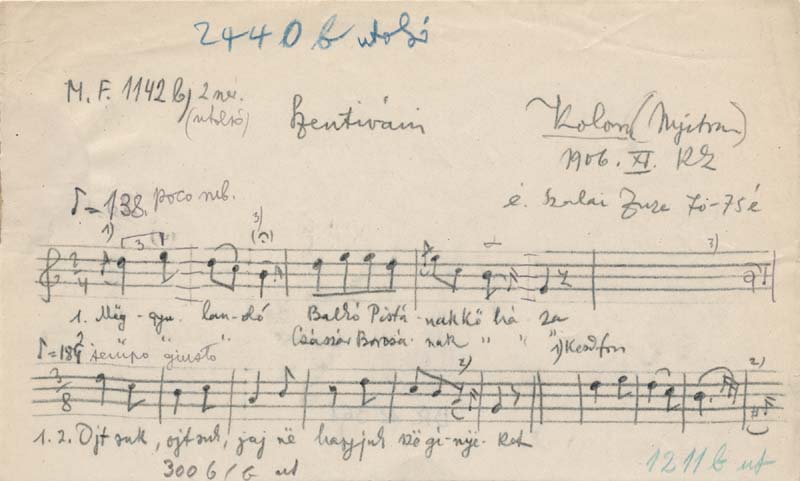 2440 b utolsó
M. F. 1142 b) 2 né.
(utolsó)
Szentiváni
Kolon (Nyitra)
1906. XI. KZ
♪=138. poco rub.
é. Szalai Zsuzsa 70-75 é
1) 3 3) 3)
2/4
1. Mëg-gyu-lan-dó Balkó Pistá-nakkő há za
Császár Borcsá-nak " " "
1) Kezdfon
♪=184 tempo "giusto"
3/8 2) 2)
1. 2. Ojtsuk, ojtsuk, jaj në haggyuk szëgí-nyë-ket
300 b / b ut
1211 b ut